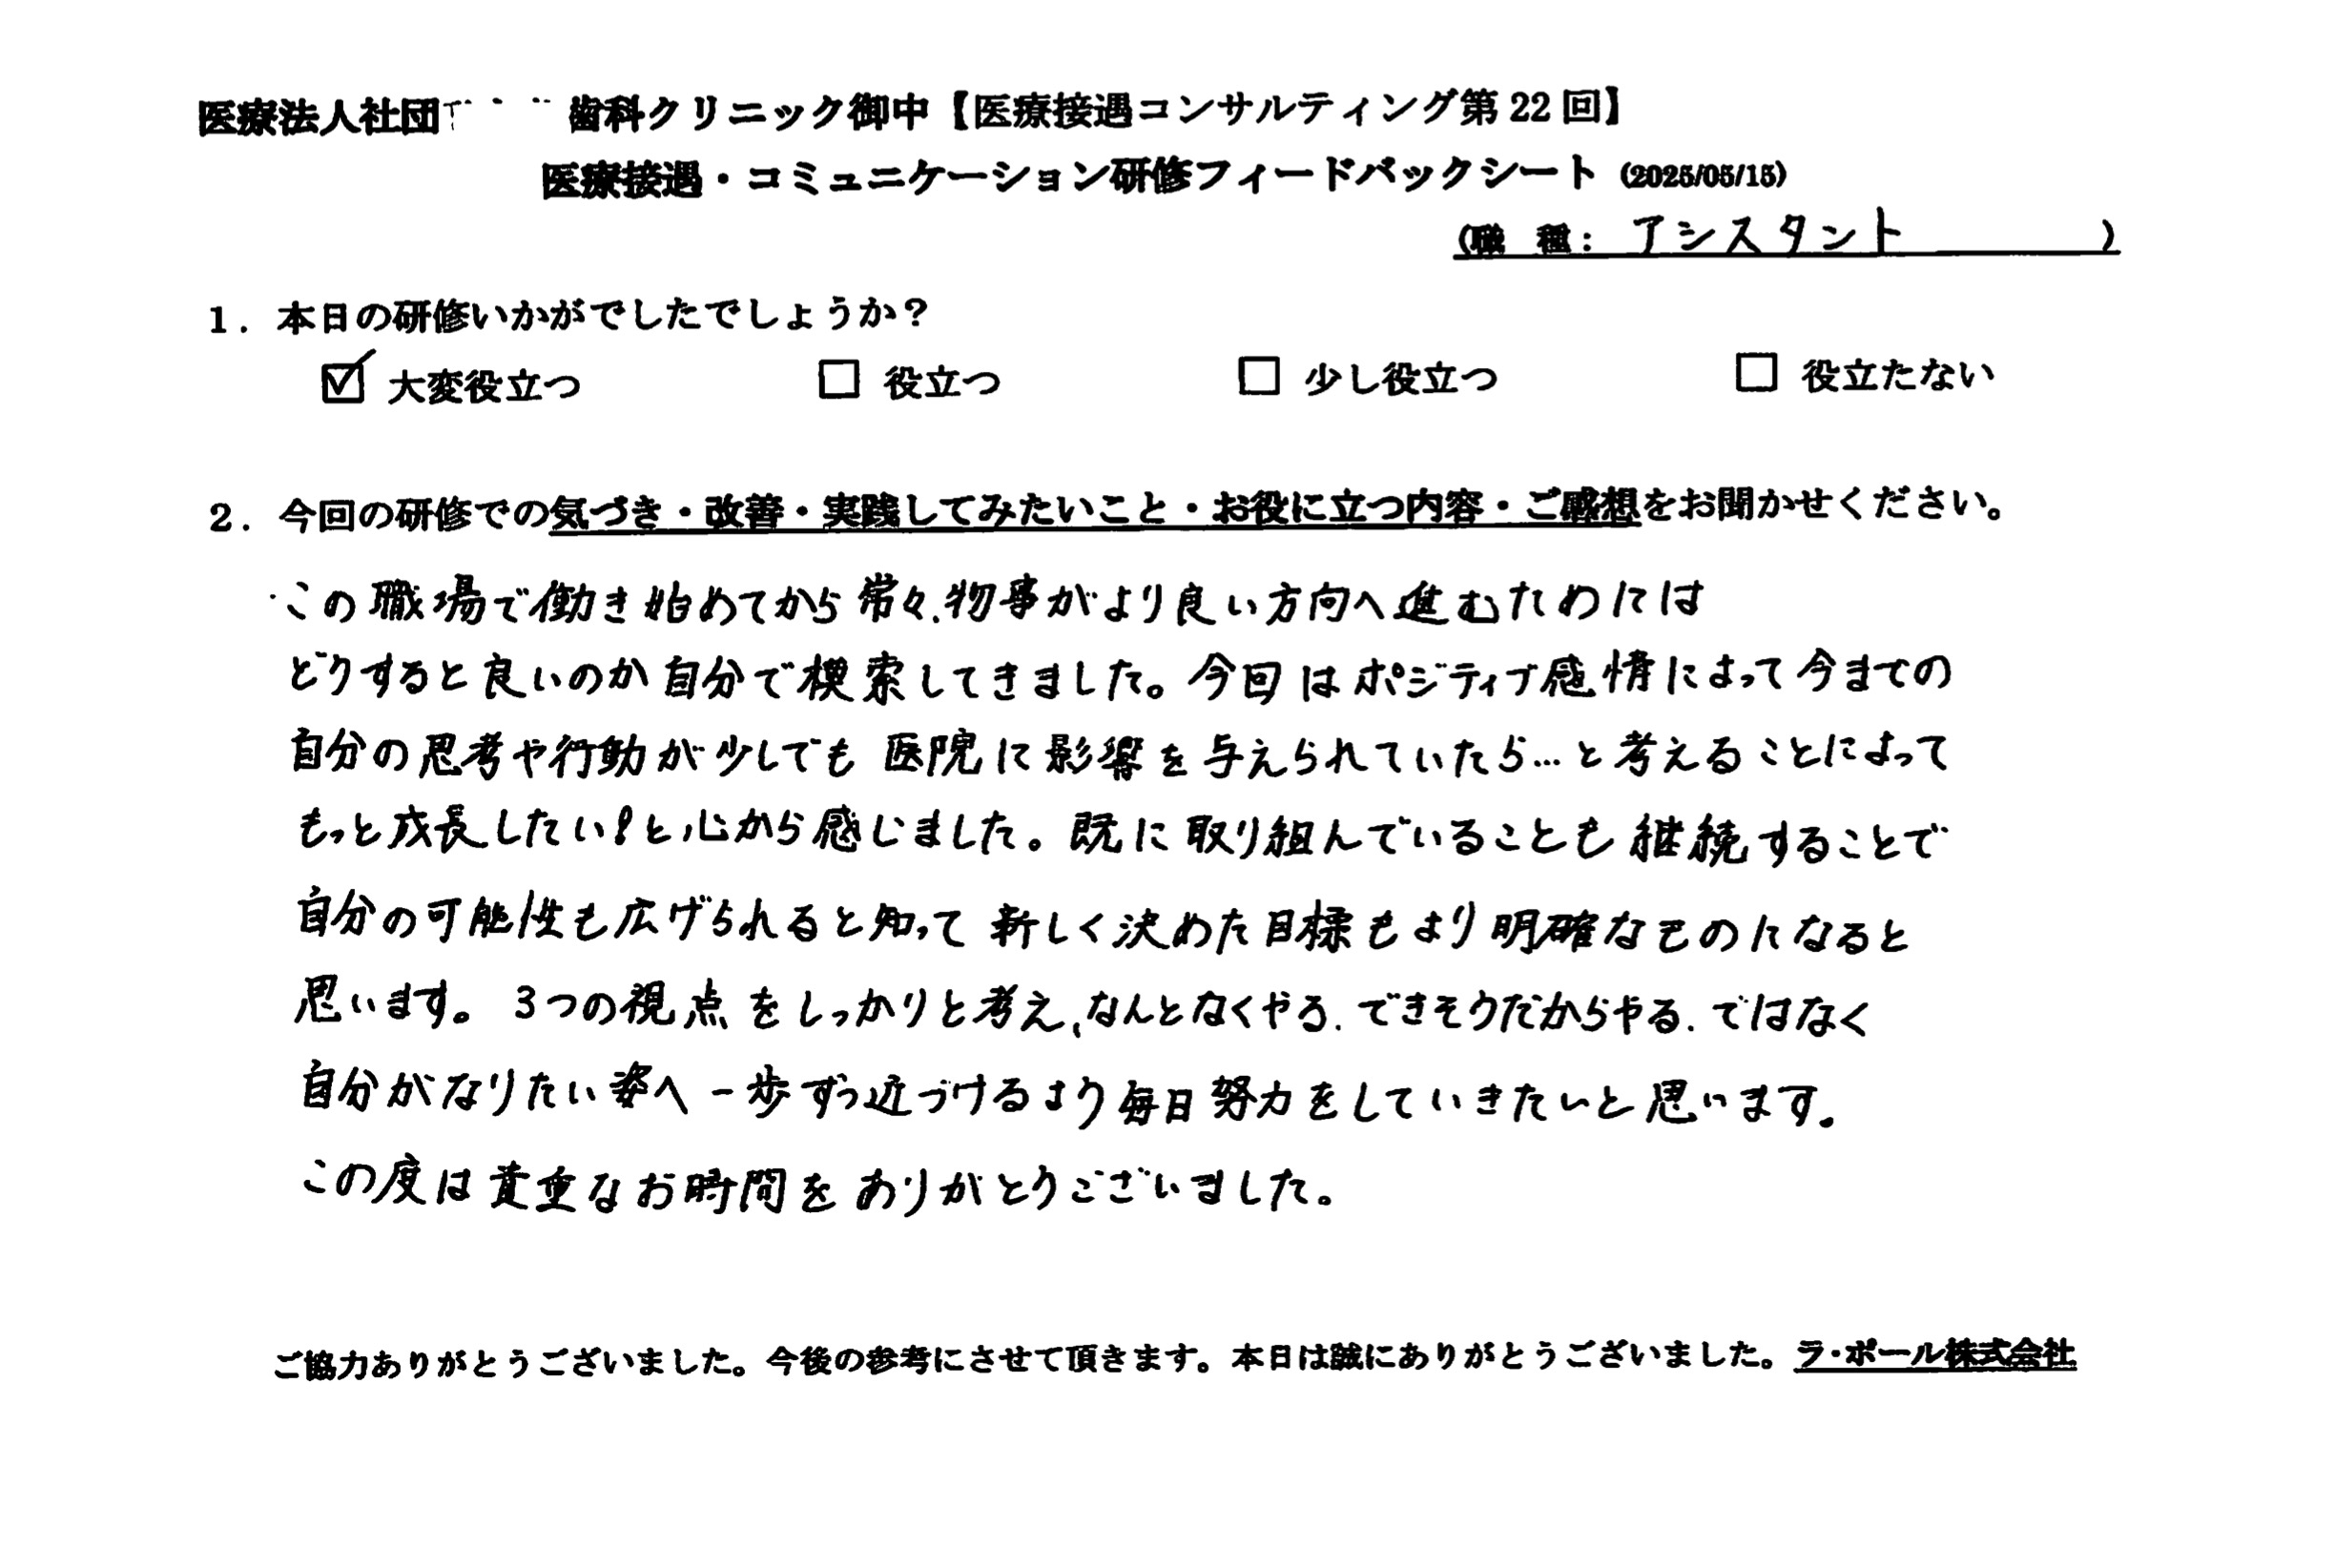 医療法人社団 歯科クリニック御中【医療接遇コンサルティング第22回】
医療接遇・コミュニケーション研修フィードバックシート（2025/05/15）
（職 種： アシスタント ）
1．本日の研修いかがでしたでしょうか？
☑ 大変役立つ □ 役立つ □ 少し役立つ □ 役立たない
2．今回の研修での気づき・改善・実践してみたいこと・お役に立つ内容・ご感想をお聞かせください。
・この職場で働き始めてから常々、物事がより良い方向へ進むためには
どうすると良いのか自分で模索してきました。今回はポジティブ感情によって今までの
自分の思考や行動が少しでも医院に影響を与えられていたら…と考えることによって
もっと成長したい！と心から感じました。既に取り組んでいることも継続することで
自分の可能性も広げられると知って新しく決めた目標もより明確なものになると
思います。3つの視点をしっかりと考え、なんとなくやる、できそうだからやる、ではなく
自分がなりたい姿へ一歩ずつ近づけるよう毎日努力をしていきたいと思います。
この度は貴重なお時間をありがとうございました。
ご協力ありがとうございました。今後の参考にさせて頂きます。本日は誠にありがとうございました。ラ・ポール株式会社